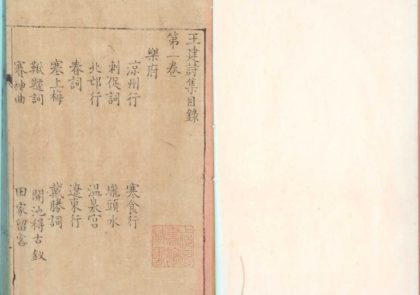 王建詩集目錄
第一卷
樂府
涼州行 寒食行
刺促詞 隴頭水
北邙行 溫泉宮
春詞 遼東行
塞上梅 戴勝詞
鞦韆詞 開池得古釵
賽神曲 田家留客